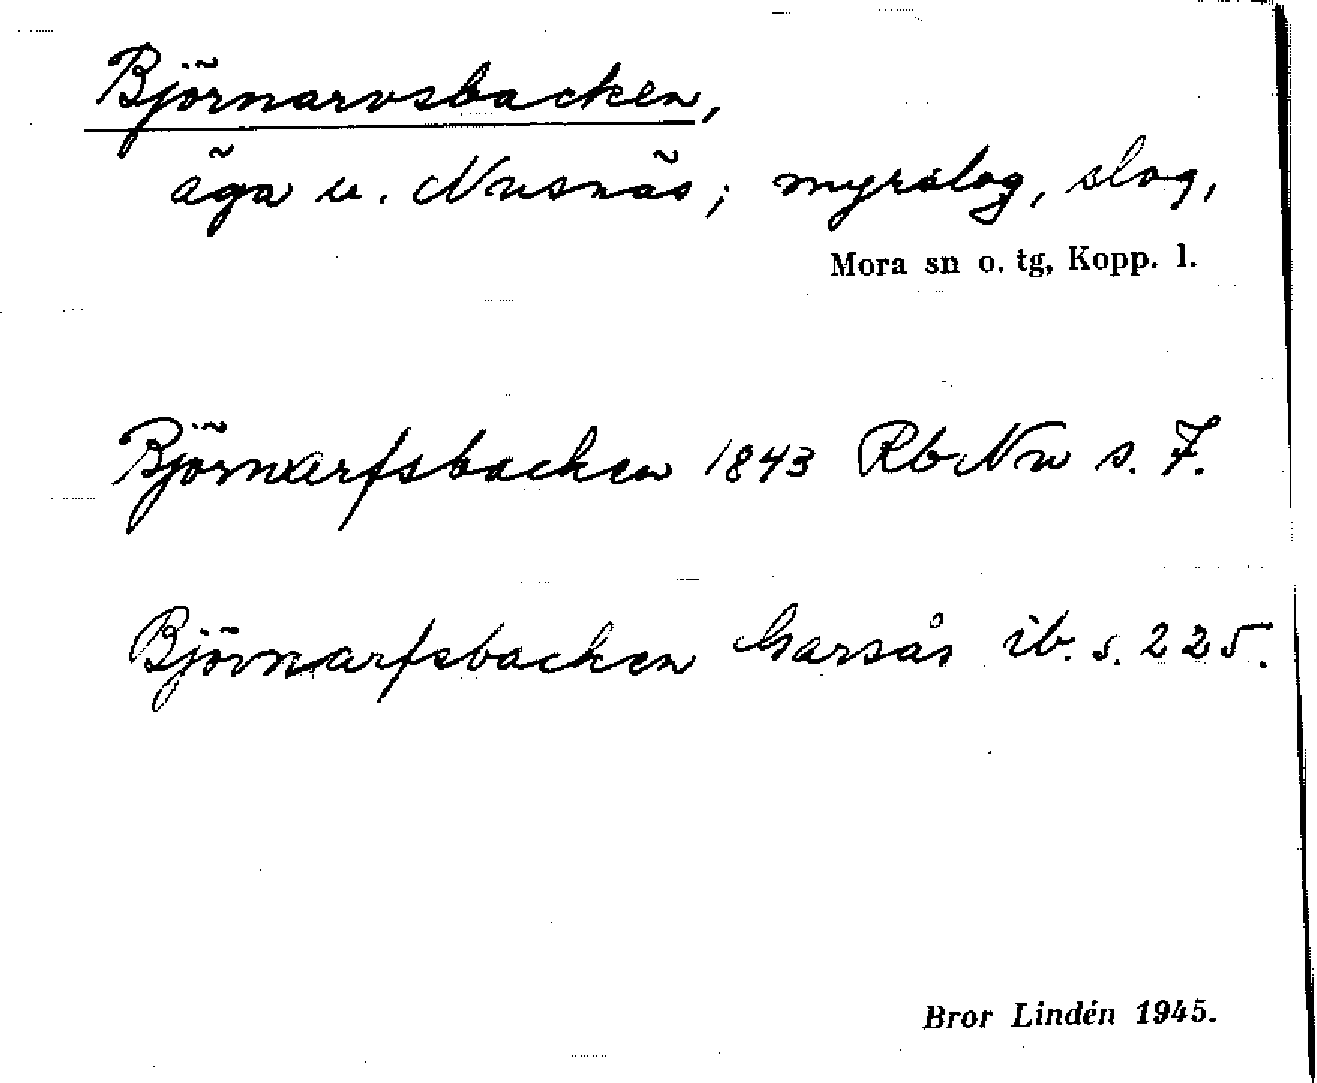 Björnarvsbacken,
äga u. Nusnäs; myrslog, slog,
Mora sn o. tg, Kopp. l.
Björnarfsbacken 1843 RbNu s. 7.
Björnarfsbacken Garsås ib. s. 225.
Bror Lindén 1945.